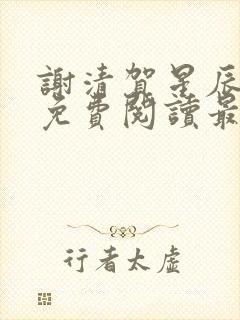 謝清賀星辰
免費閱讀最
行者太虛